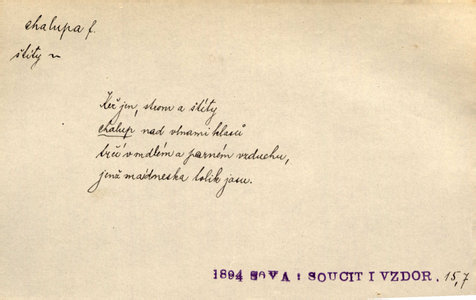 chalupa f.
štíty ~
Keř jen, strom a štíty
chalup nad vlnami klasů
trčí v mdlém a parném vzduchu,
jenž má dneska tolik jasu.
1894 SOVA: SOUCIT I VZDOR. 15,7